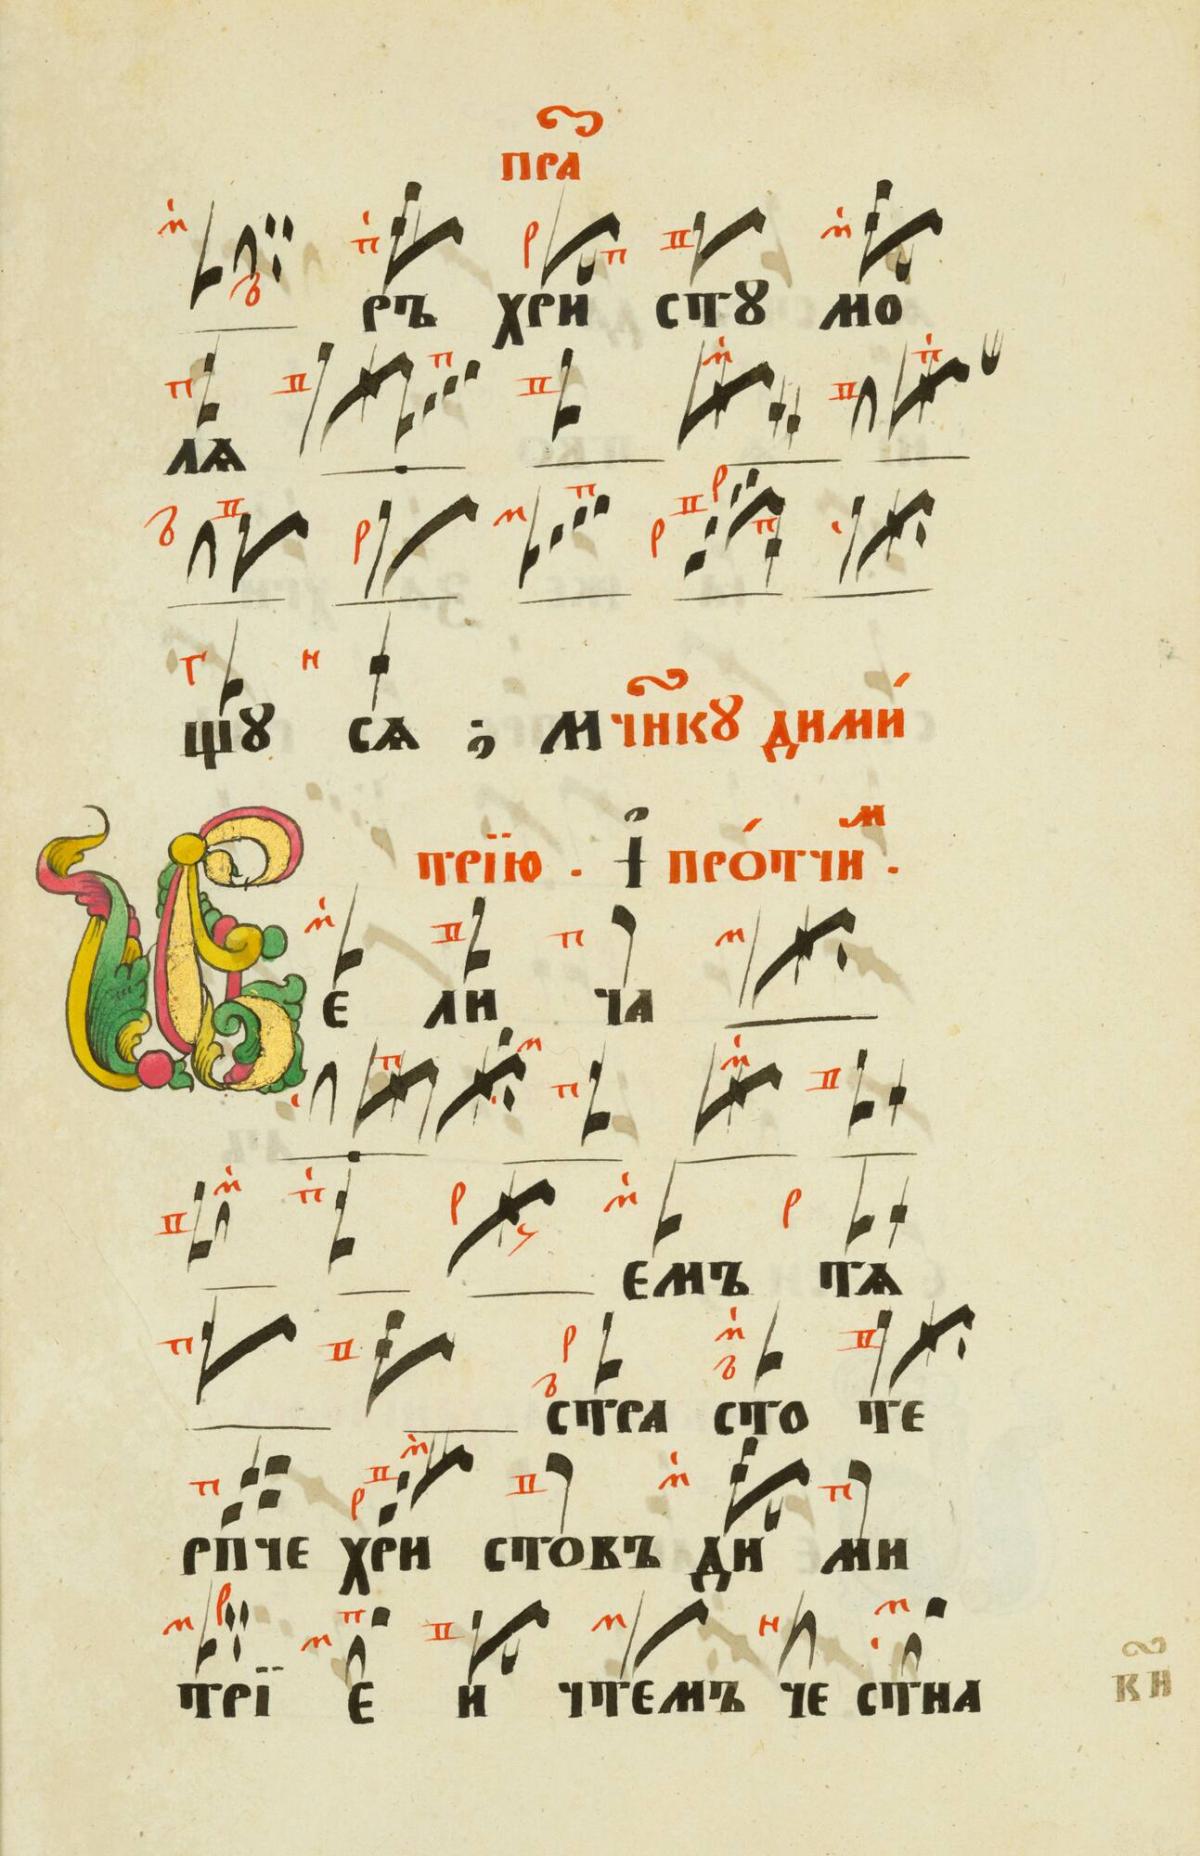 пра҃
ръ хри стꙋ мо
лѧ
щїꙋ сѧ ; мч҃нкꙋ дими́
трїю . і҆ про́тчиᷟ .
В е ли ча
емъ тѧ
стра сто те
рпче хри стовъ ди ми
трї е и чтемъ че стна
к҃и